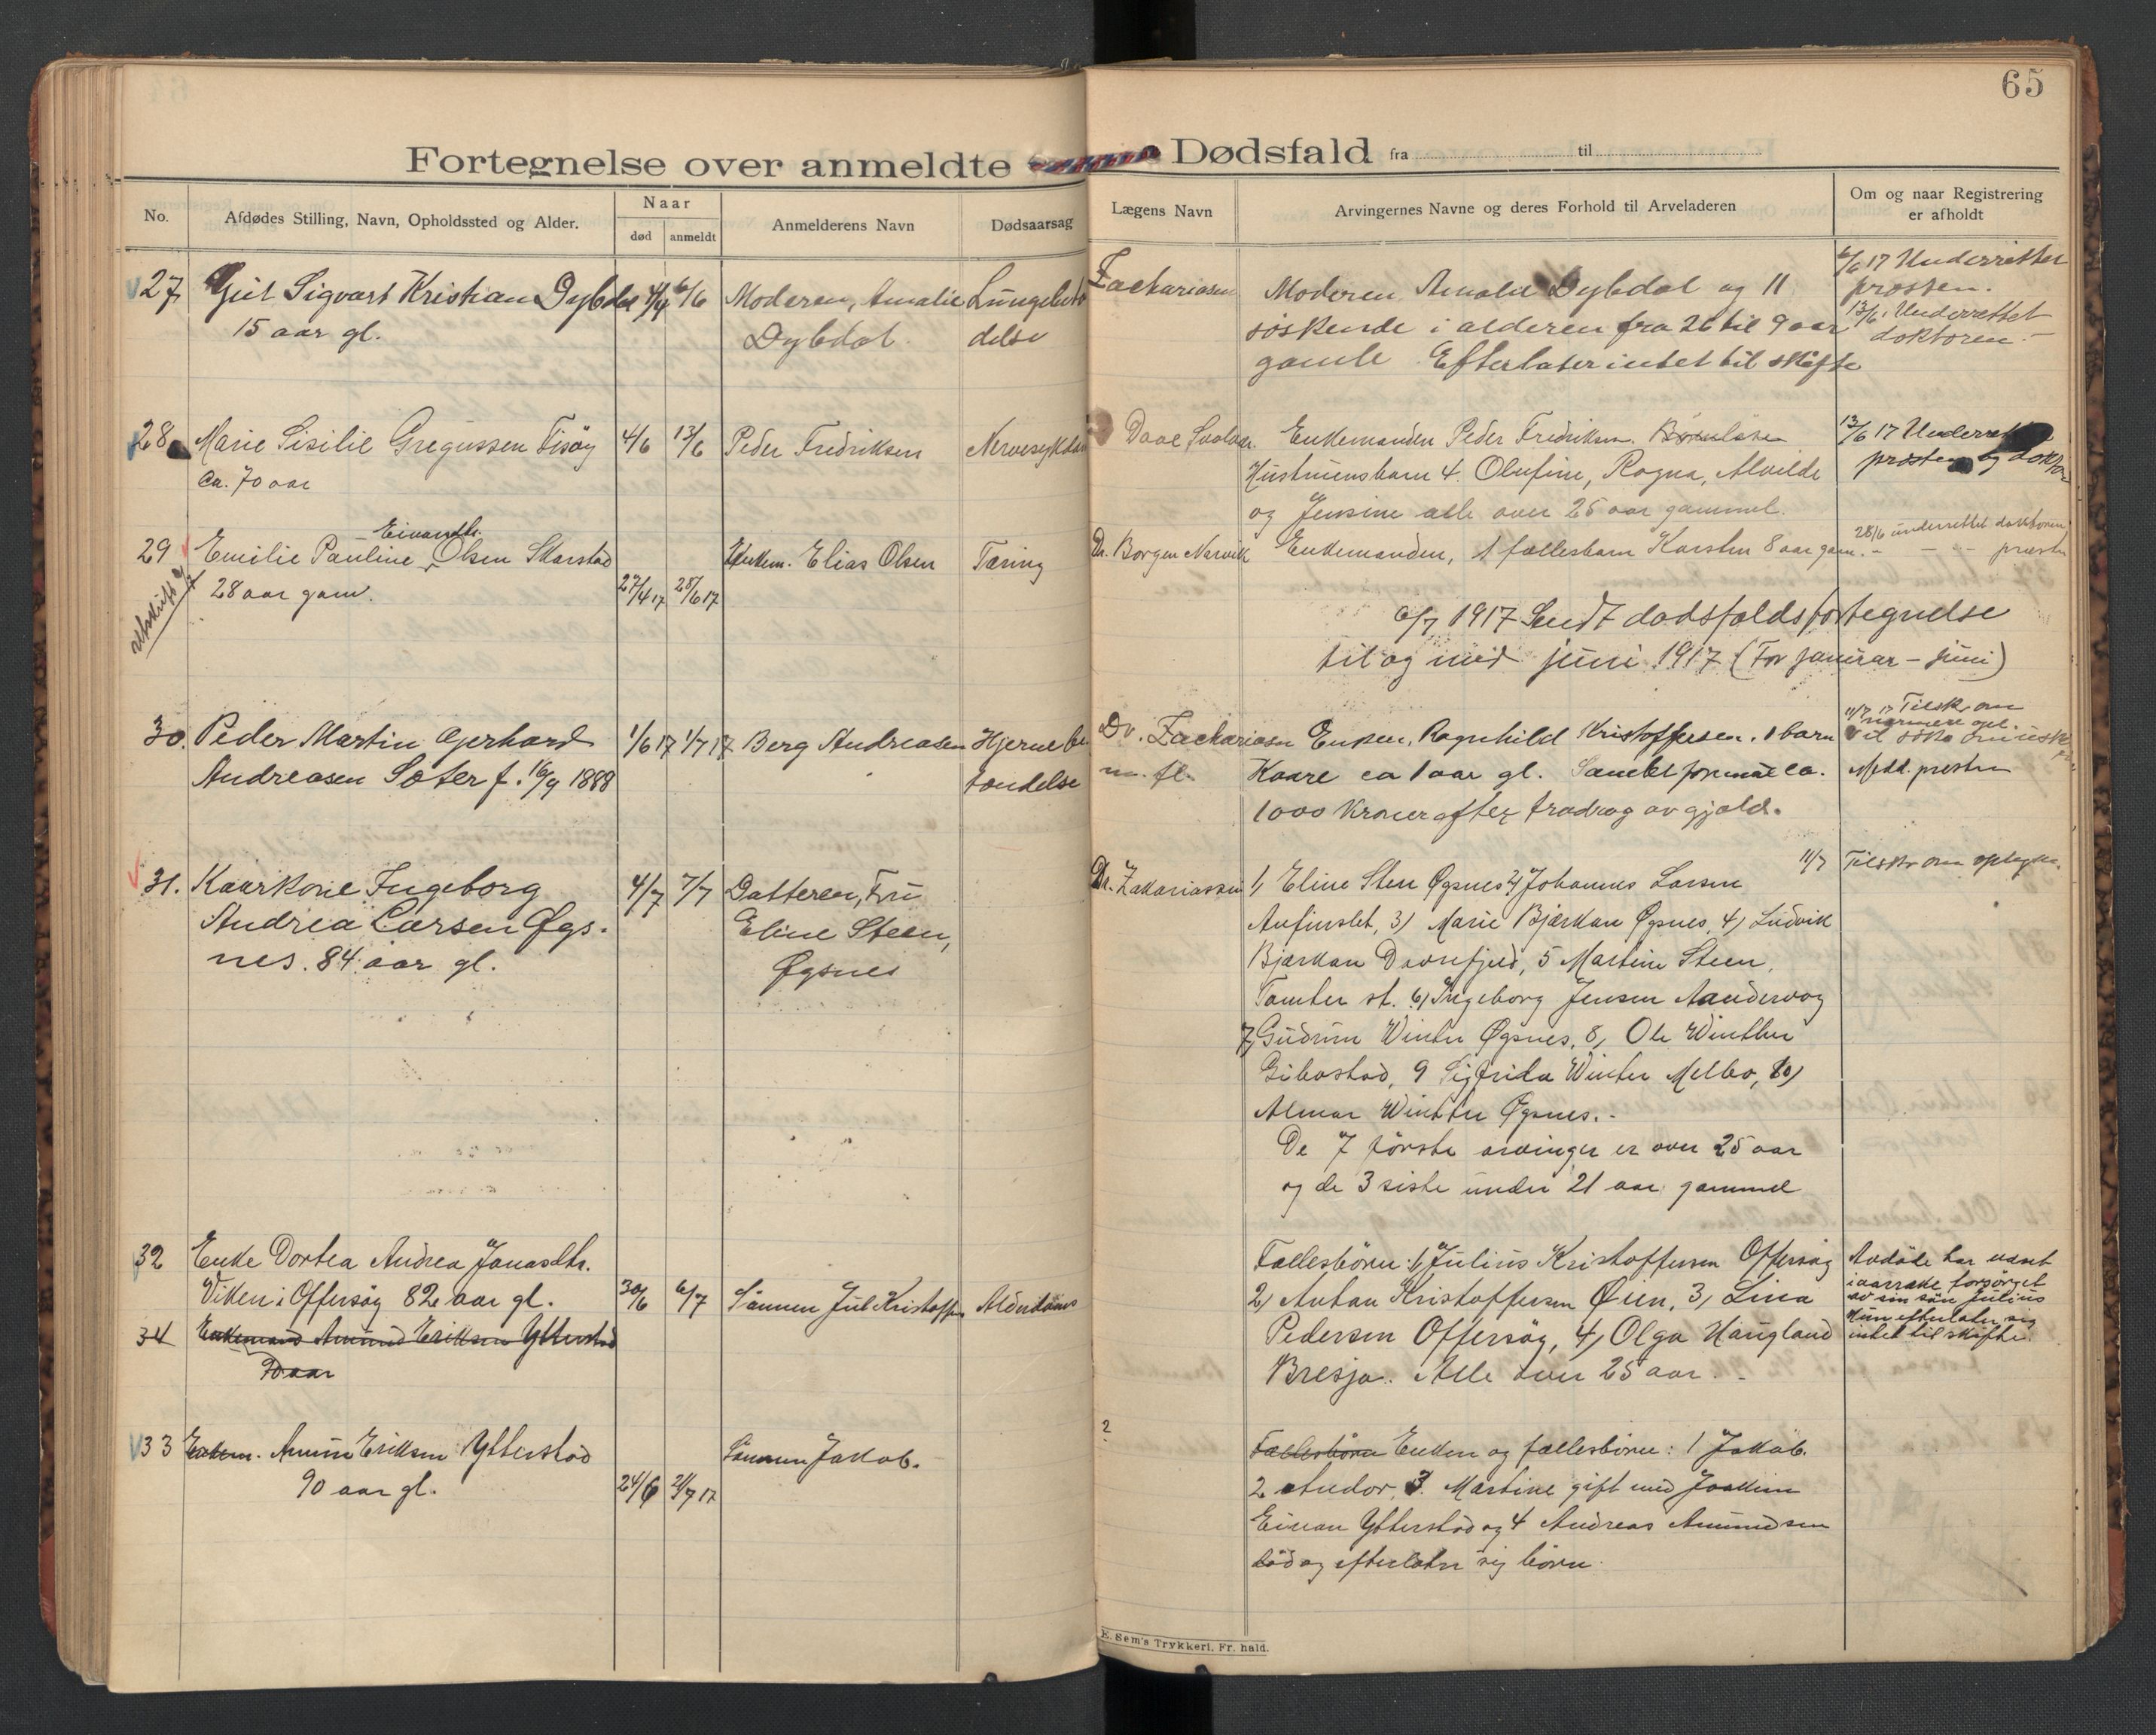 65
Fortegnelse over anmeldte Dødsfald fra til
No. Afdødes Stilling, Navn, Opholdssted og Alder. Naar Anmelderens Navn Dødsaarsag
død anmeldt
Lægens Navn Arvingernes Navne og deres Forhold til Arveladeren Om og naar Registrering
er afholdt
27 Gut Sigvart Kristian Dybdal 4/4 6/6 Moderen, Amalie Lungebete
15 aar gl. Dybdal delse
28 Marie Sisilie Gregussen Tisøy 4/6 13/6 Peder Fredriksen Nervesykdom
ca. 70 aar
Eivardtr.
29 Emilie Pauline Olsen Skarstad Enkem. Elias Olsen Tæring
28 aar gam. 27/4 17 28/6 17
avskrift
30. Peder Martin Gerhard 1/6 17 1/7 17 Berg Andreasen Hjernebe
Andreasen Sæter f. 16/9 1888 tændelse
31. Kaarkone Ingeborg 4/7 7/7 Datteren, Fru
Andrea Larsen Øgs- Eline Steen,
nes. 84 aar gl. Øgsnes
32 Enke Dortea Andrea Jonasdtr.
Viken i Offersøy 82 aar gl. 30/6 6/7 Sønnen Jul Kristoffersen Alderdoms
34 Enkemand Amund Eriksen Ytterstad
90 aar
33 Enkem. Amun Eriksen Ytterstad Sønnen Jakob.
90 aar gl. 24/6 2/7 17
Zachariasen Moderen Amalie Dybdal og 11 6/6 17 Underrettet
søskende i alderen fra 26 til 9 aar prosten.
gamle. Efterlater intet til skifte 13/6. Underrettet
doktoren.-
Daae Svolvær. Enkemanden Peder Fredriksen. Barnløse 13/6 17 Underrettet
Hustruens barn 4. Olufine, Ragna, Alvilde prosten og doktor
og Jensine alle over 25 aar gammel.
Dr. Borgen Narvik Enkemanden, 1 fællesbarn Karsten 8 aar gam. 28/6 underrettet doktoren
- - - præsten
6/7 1917 Sendt dødsfaldsfortegnelse
til og med juni 1917 (For januar - juni)
Dr. Zachariasen Enken, Ragnhild Kristoffersen. 1 barn 11/7 17 Tilsk. om
m. fl. Kaare ca 1 aar gl. Samlet formue ca. nærmere opl.
1000 kroner efter fradrag av gjæld. Vil søke uskifte
Medd. presten
Dr. Zakariassen 1, Eline Sten Øgsnes 2, Johannes Larsen 11/7 Tilskr om oplysn.
Anfinslet, 3) Marie Bjærkan Øgsnes, 4, Ludvik
Bjærkan Dverfjeld, 5 Martin Steen,
Tomter st. 6, Ingeborg Jensen Aandervaag
7, Gudrun Winter Øgsnes, 8, Ole Winther
Gibostad, 9 Sigfrida Winter Melbo, 10)
Almar Winther Øgsnes.-
De 7 første arvinger er over 25 aar
og de 3 siste under 21 aar gammel
Fællesbörn: 1, Julius Kristoffersen Offersøy Avdøde har været
2, Anton Kristoffersen Øien, 3, Lina i aarrække forsørget
Pedersen Offersøy, 4, Olga Haugland av sin søn Julius
Bresja. Alle over 25 aar. Hun efterlater sig
intet til skifte.
? Fællesbörn Enken og fællesbörn: 1 Jakob.
2 Andor, 3. Martine gift med Joakim
Einan Ytterstad og 4 Andreas Amundsen
död og efterlater sig börn.
E. Sem's Trykkeri. Fr. hald.